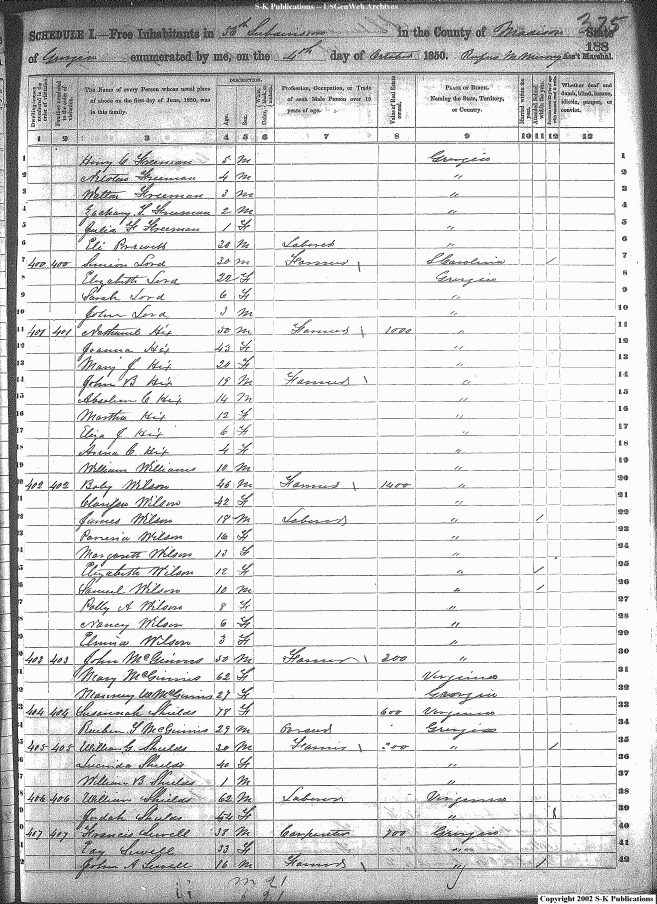 S-K Publications -- USGenWeb Archives
375
SCHEDULE I.—Free Inhabitants in 56th Subdivision in the County of Madison State
188
of Georgia enumerated by me, on the 4th day of October 1850. Ass't Marshal.
Dwelling-houses numbered in the order of visitation.
Families numbered in the order of visitation.
The Name of every Person whose usual place of abode on the first day of June, 1850, was in this family.
DESCRIPTION.
Age.
Sex.
Profession, Occupation, or Trade of each Male Person over 15 years of age.
Value of Real Estate owned.
PLACE OF BIRTH. Naming the State, Territory, or Country.
Married within the year.
Attended School within the year.
Whether deaf and dumb, blind, insane, idiotic, pauper, or convict.
1 2 3 4 5 6 7 8 9 10 11 12 13
1 Henry C Freeman 5 M Georgia 1
2 Freeman 4 M " 2
3 Freeman 3 M " 3
4 Zachary T Freeman 2 M " 4
5 Julia F Freeman 1 F " 5
6 Eli 20 M Laborer " 6
7 400 400 Simeon Lord 30 M Farmer S Carolina / 7
8 Elizabeth Lord 22 F Georgia 8
9 Sarah Lord 6 F " 9
10 John Lord 3 M " 10
11 401 401 Nathaniel Hix 50 M Farmer 1000 " 11
12 Joanna Hix 43 F " 12
13 Mary J Hix 20 F " 13
14 John B Hix 19 M Farmer " 14
15 C Hix 14 M " 15
16 Martha Hix 12 F " 16
17 Eliza J Hix 6 F " 17
18 C Hix 4 F " 18
19 William Williams 10 M " 19
20 402 402 Wilson 46 M Farmer 1400 " 20
21 Wilson 42 F " 21
22 James Wilson 18 M Laborer " / 22
23 Wilson 16 F " 23
24 Margarett Wilson 13 F " 24
25 Elizabeth Wilson 12 F " / 25
26 Samuel Wilson 10 M " / 26
27 Polly A Wilson 8 F " 27
28 Nancy Wilson 6 F " 28
29 Elmira Wilson 3 F " 29
30 403 403 John McGinnis 50 M Farmer 200 " 30
31 Mary McGinnis 62 F Virginia 31
32 McGinnis 27 F Georgia 32
33 404 404 Susannah Shields 78 F 600 Virginia 33
34 Reuben S McGinnis 29 M Georgia 34
35 405 405 William G Shields 30 M Farmer 300 " / 35
36 Lucinda Shields 40 F " 36
37 William B Shields 1 M " 37
38 406 406 William Shields 62 M Laborer Virginia 38
39 Judah Shields 54 F " 39
40 407 407 Francis Sewell 38 M Carpenter 700 Georgia 40
41 Sewell 33 F " 41
42 John A Sewell 16 M Farmer " / 42
Copyright 2002 S-K Publications